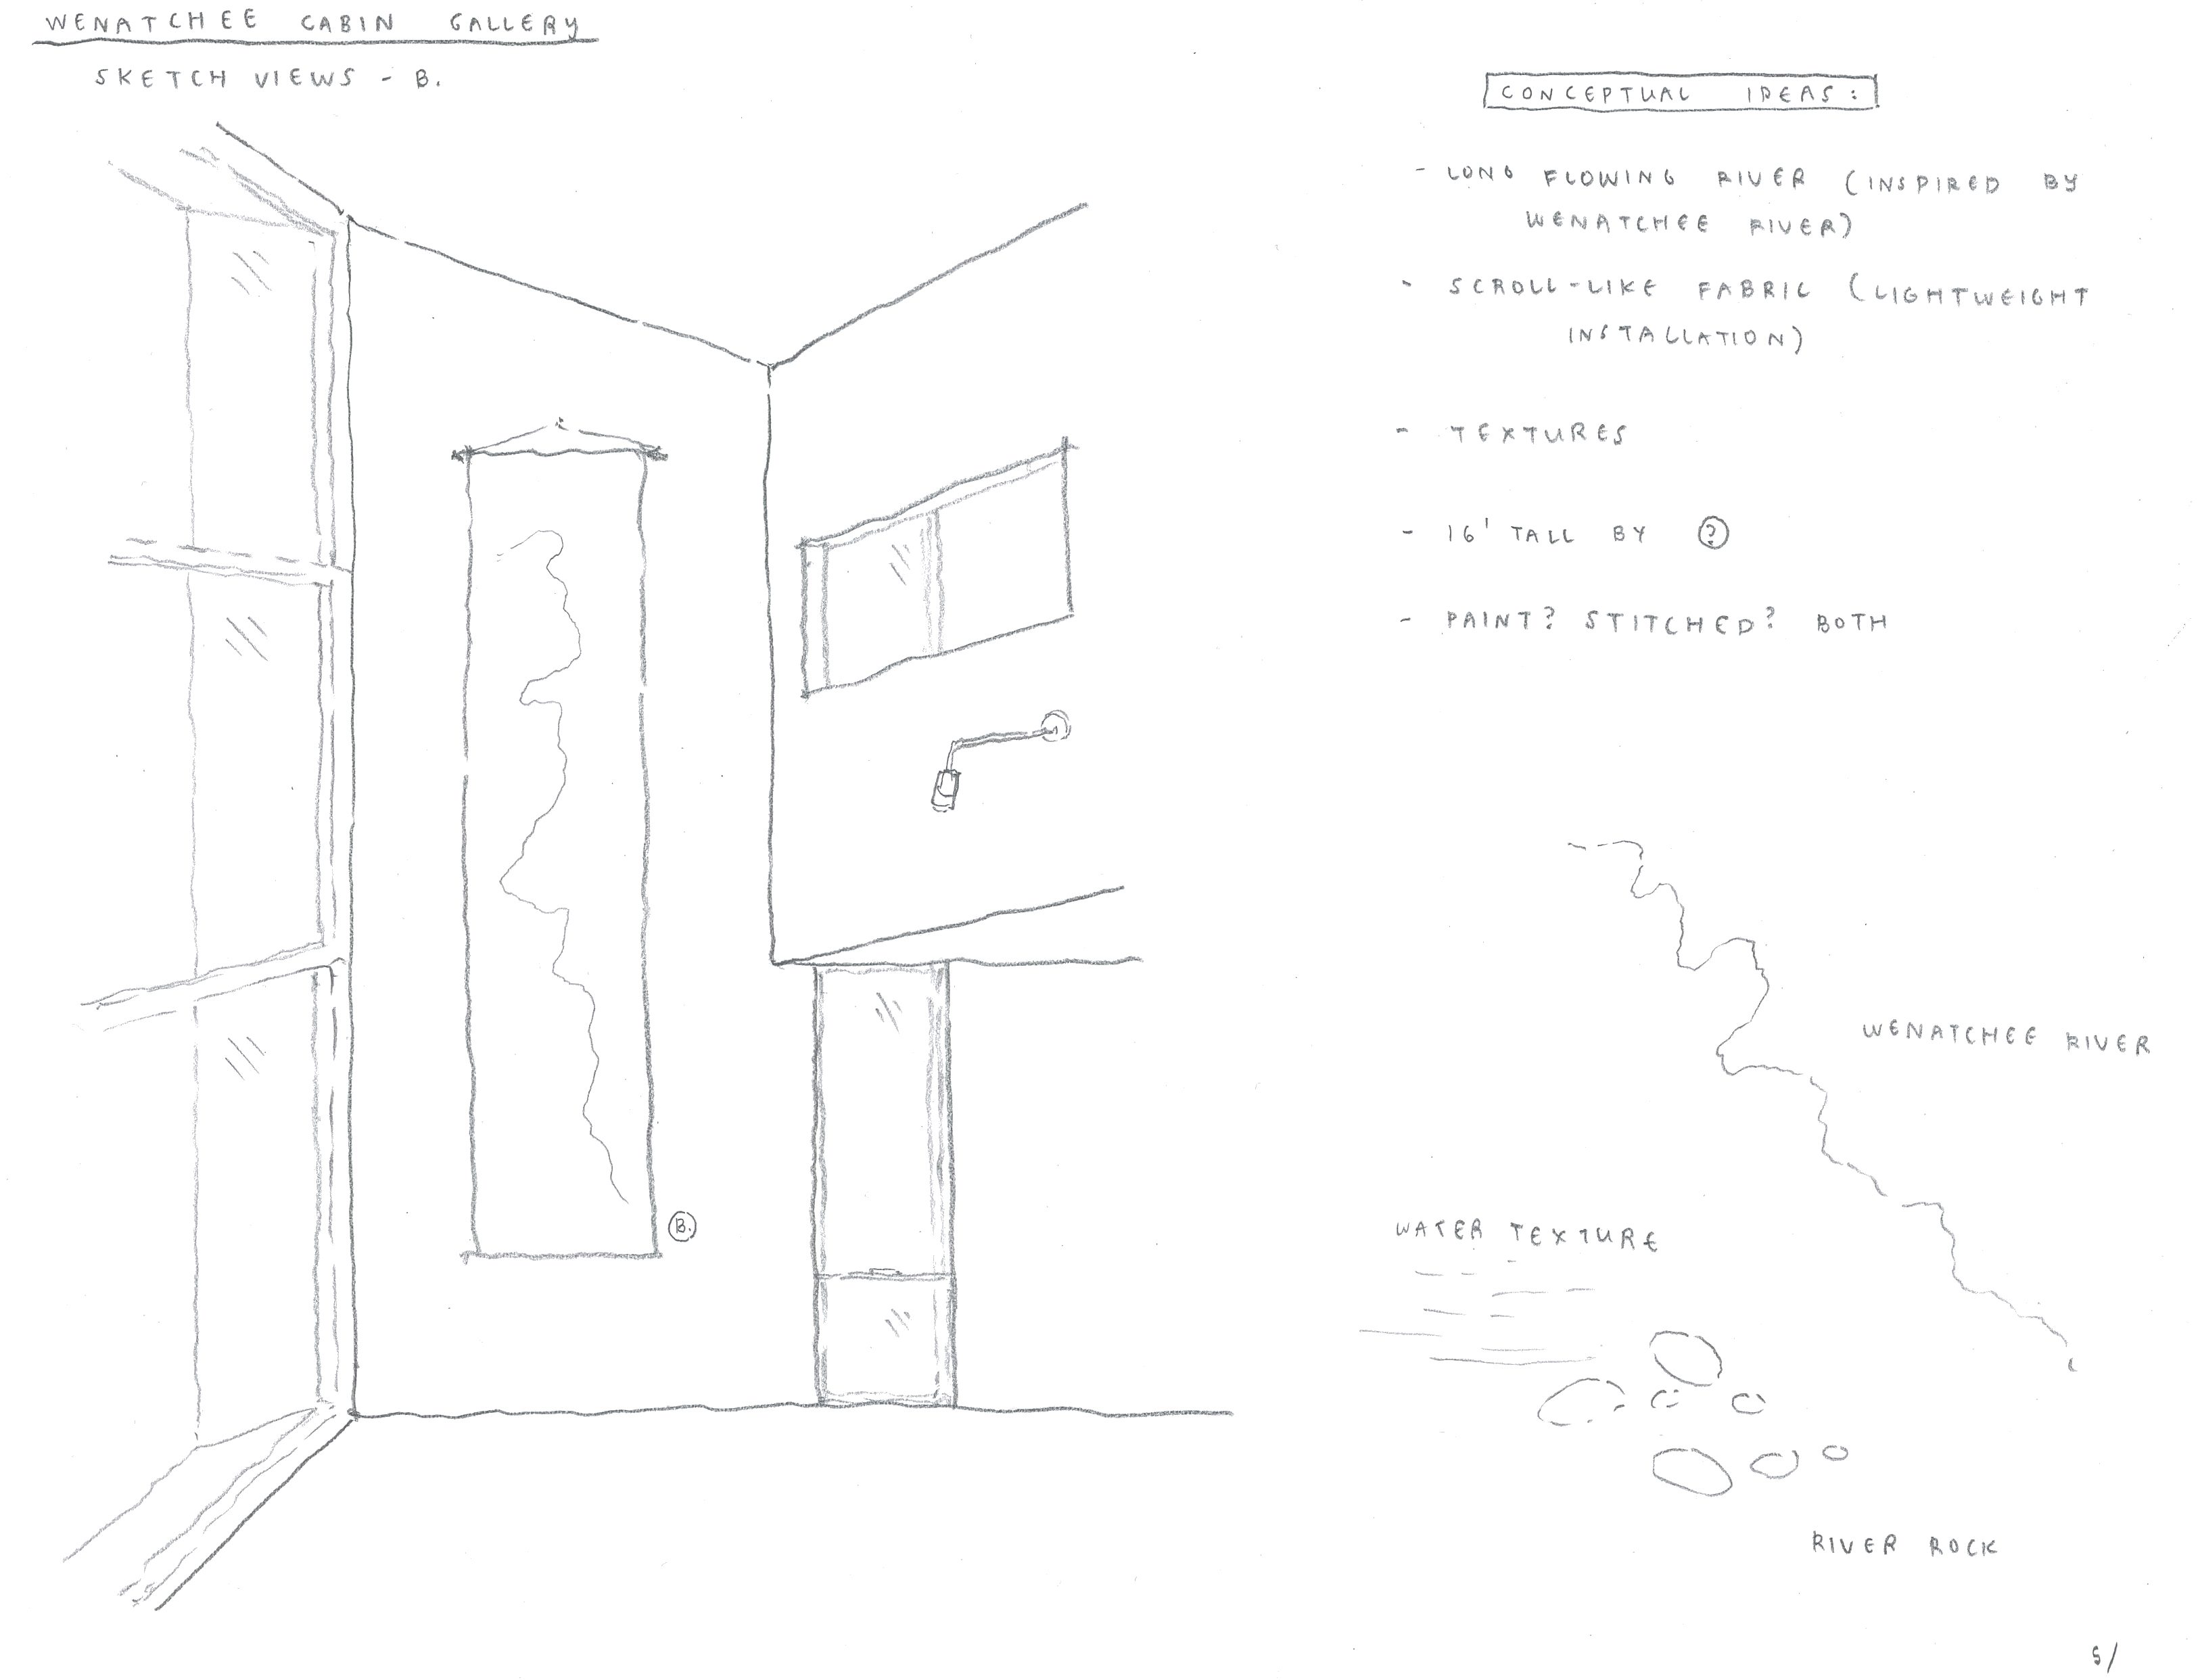 WENATCHEE CABIN GALLERY
SKETCH VIEWS - B.
B.
CONCEPTUAL IDEAS:
- LONG FLOWING RIVER (INSPIRED BY
WENATCHEE RIVER)
- SCROLL-LIKE FABRIC (LIGHTWEIGHT
INSTALLATION)
- TEXTURES
- 16' TALL BY ?
- PAINT? STITCHED? BOTH
WENATCHEE RIVER
WATER TEXTURE
RIVER ROCK
5/